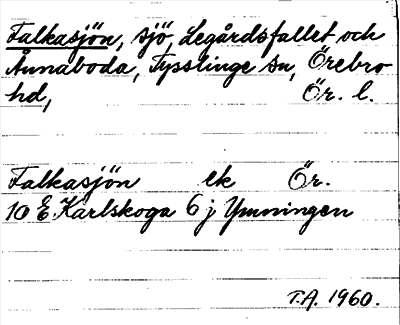 Falkasjön, sjö, Legårdsfallet och
Ånnaboda, Tysslinge sn, Örebro
hd, Ör. l.
Falkasjön ek Ör.
10 E Karlskoga 6 j Ymningen
T.A. 1960.